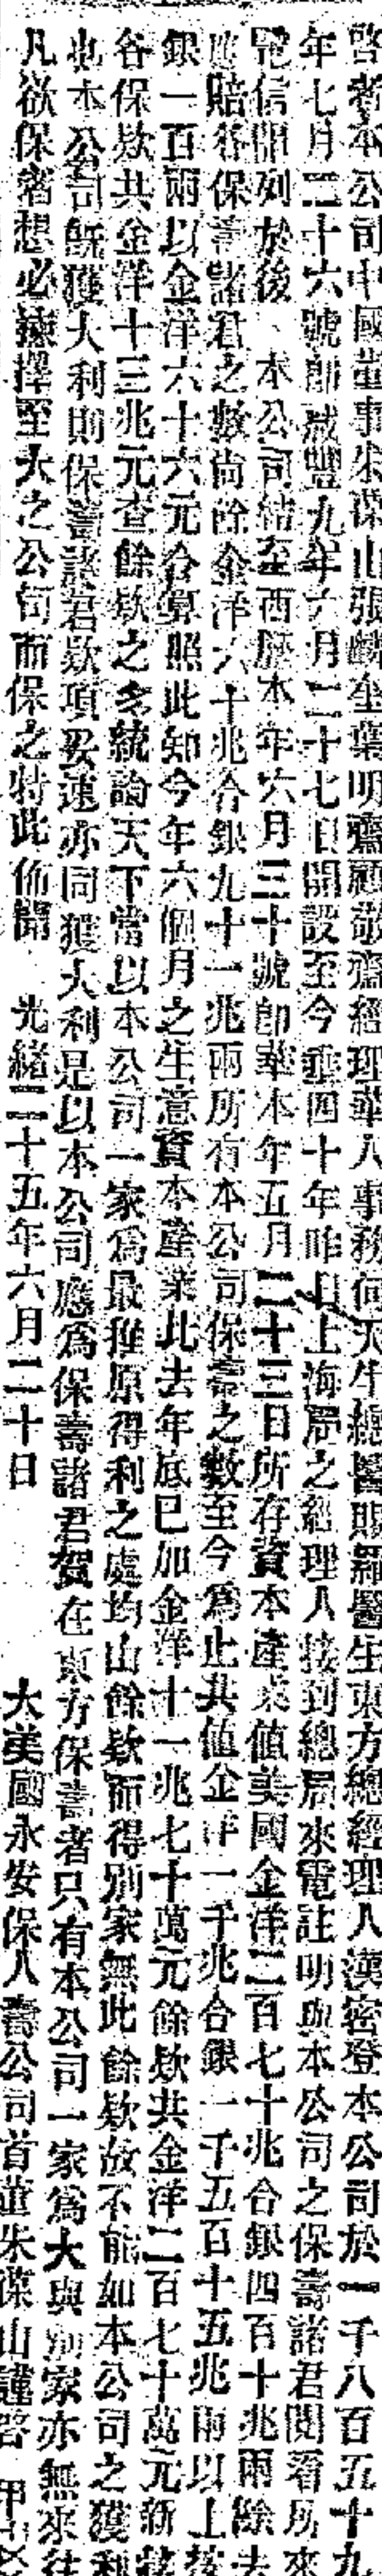 啓者本公司中國董事朱葆山張麟奎葉明齋顧敬齋經理華人事務何天生總醫賜羅醫生東方總經理人漢密登本公司於一千八百五十九
年七月二十六號卽咸豐九年六月二十七日開設至今垂四十年昨日上海局之經理人接到總局來電註明與本公司之保壽諸君閱看所來
電信開列於後 本公司結至西歷本年六月三十號卽華本年五月二十三日所存資本產業値美國金洋二百七十兆合銀四百十兆兩除去
賠各保壽諸君之數尙餘金洋六十兆合銀九十一兆兩所有本公司保壽之數至今爲止共値金洋一千兆合銀一千五百十五兆兩以上按
銀一百兩以金洋六十六元合算照此知今年六個月之生意資本產業比去年底已加金洋十一兆七十萬元餘欵共金洋二百七十萬元新
各保欵共金洋十三兆元查餘欵之多統論天下當以本公司一家爲最推原得利之處均由餘欵而得別家無此餘欵故不能如本公司之獲利
也本公司旣獲大利則保壽諸君欵項妥速亦同獲大利是以本公司應爲保壽諸君賀在東方保壽者只有本公司一家爲大與別家亦無來往
凡欲保者想必揀擇至大之公司而保之特此佈聞 光緒二十五年六月二十日 大美國永安保人壽公司首董朱葆山謹啓